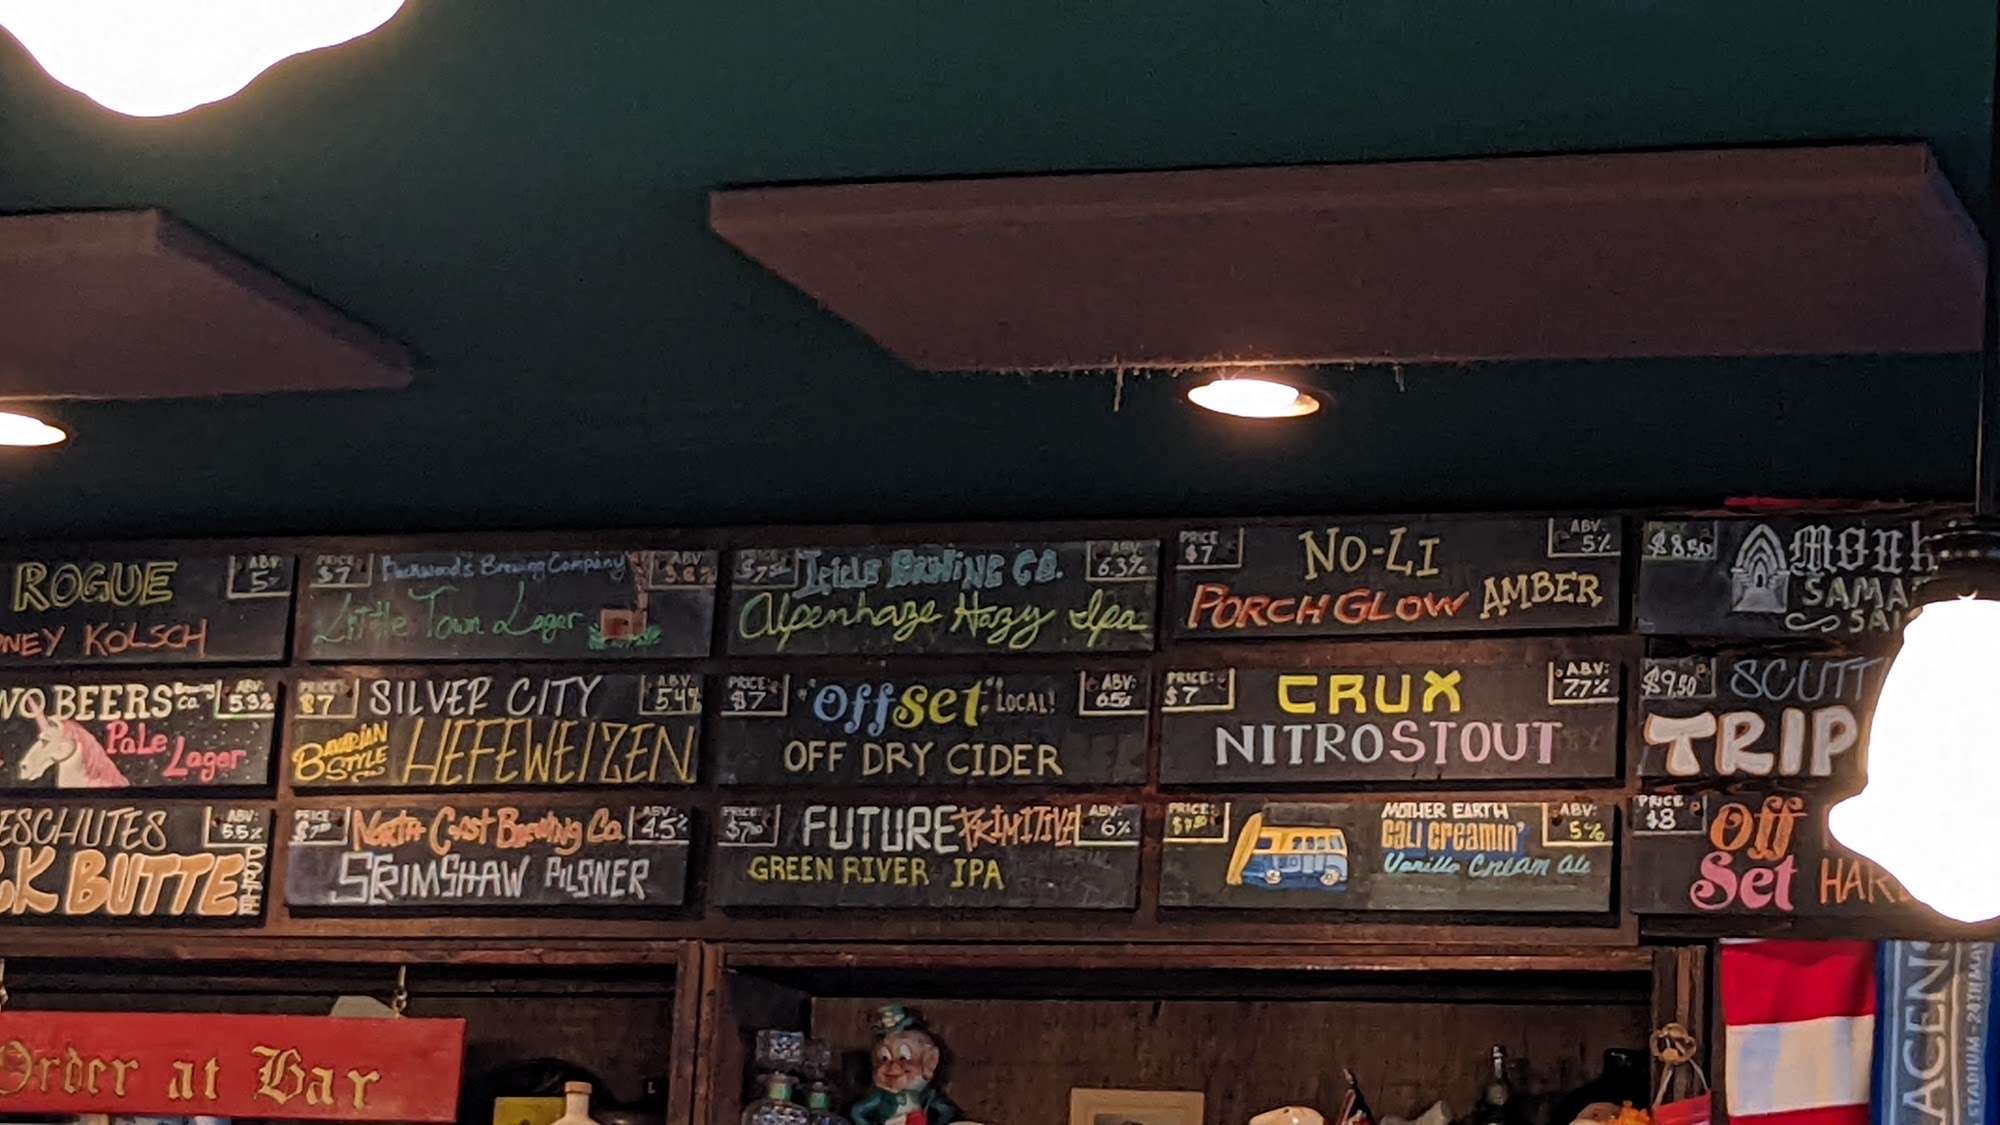 ROGUE
ABV:
5%
NEY KOLSCH
PRICE
$7
Backwoods Brewing Company
ABV:
3.8%
Little Town Lager
Icicle BREWING CO.
ABV:
6.3%
Alpenhaze Hazy Ipa
PRICE
$7
NO-LI
ABV:
5%
PORCH GLOW AMBER
$8.50
SAMA
SAI
WO BEERS Co.
ABV:
5.3%
Pale
Lager
PRICE:
$7
SILVER CITY
ABV:
5.4%
BAVARIAN
STYLE
HEFEWEIZEN
PRICE:
$7
"Offset" LOCAL!
ABV:
OFF DRY CIDER
PRICE:
$7
CRUX
ABV:
7.7%
NITRO STOUT
$9.50
SCUTT
TRIP
ESCHUTES
ABV:
5.5%
CK BUTTE
PRICE:
North Coast Brewing Co.
ABV:
4.5%
SCRIMSHAW PILSNER
PRICE:
FUTURE PRIMITIVE
ABV:
6%
GREEN RIVER IPA
PRICE:
MOTHER EARTH
ABV:
5%
CALI CREAMIN'
Vanilla Cream Ale
PRICE
$8
Off
Set
HAR
Order at Bar
AGEN
STADIUM